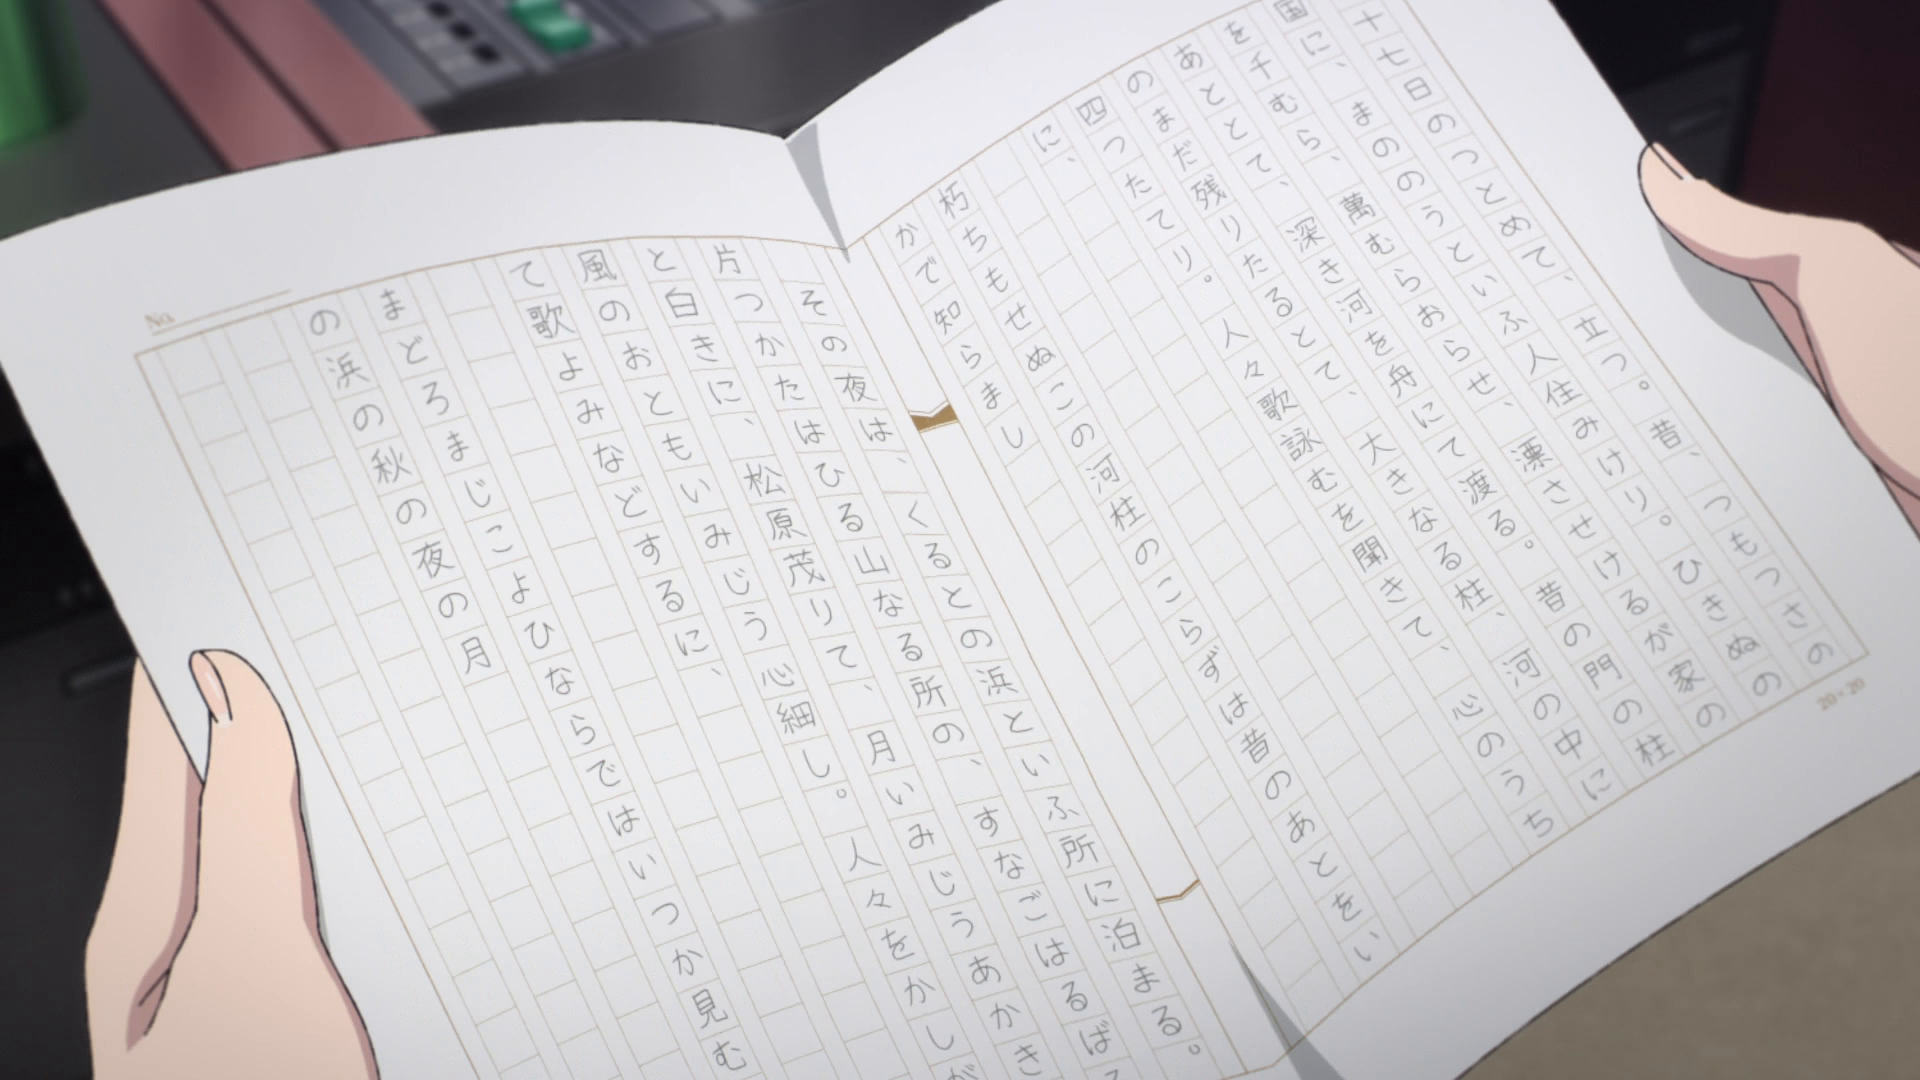 十七日のつとめて、立つ。昔、つもつさの
国に、まののうといふ人住みけり。ひきぬの
を千むら、萬むらおらせ、漂させけるが家の
あととて、深き河を舟にて渡る。昔の門の柱
のまだ残りたるとて、大きなる柱、河の中に
四つたてり。人々歌詠むを聞きて、心のうち
に、
朽ちもせぬこの河柱のこらずは昔のあとをい
かで知らまし
20×20
その夜は、くるとの浜といふ所に泊まる。
片つかたはひる山なる所の、すなごはるば
と白きに、松原茂りて、月いみじうあかき
風のおともいみじう心細し。人々をかしが
て歌よみなどするに、
まどろまじこよひならではいつか見む
の浜の秋の夜の月
No.